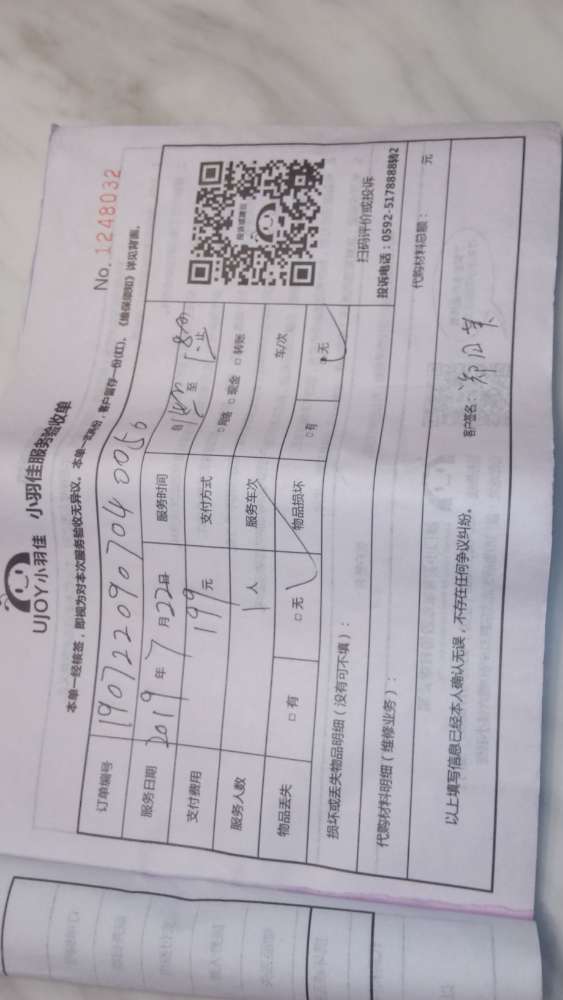 UJOY小羽佳 小羽佳服务验收单
No.1248032
本单一经核签,即视为对本次服务验收无异议。本单一式两份,客户留存一份(红),《维保须知》详见背面。
订单编号 190722090704005
服务日期 2019 年 7 月 22日 服务时间 自 至 止
支付费用 199 元 支付方式 □网络 □现金 □转账
服务人数 1 人 服务车次 车/次
物品丢失 □有 □无 物品损坏 □有 □无
投诉或建议
扫码评价或投诉
投诉电话:0592-5178888转2
损坏或丢失物品明细(没有可不填):
代购材料明细(维修业务): 代购材料总额: 元
以上填写信息已经本人确认无误,不存在任何争议纠纷。 客户签名: